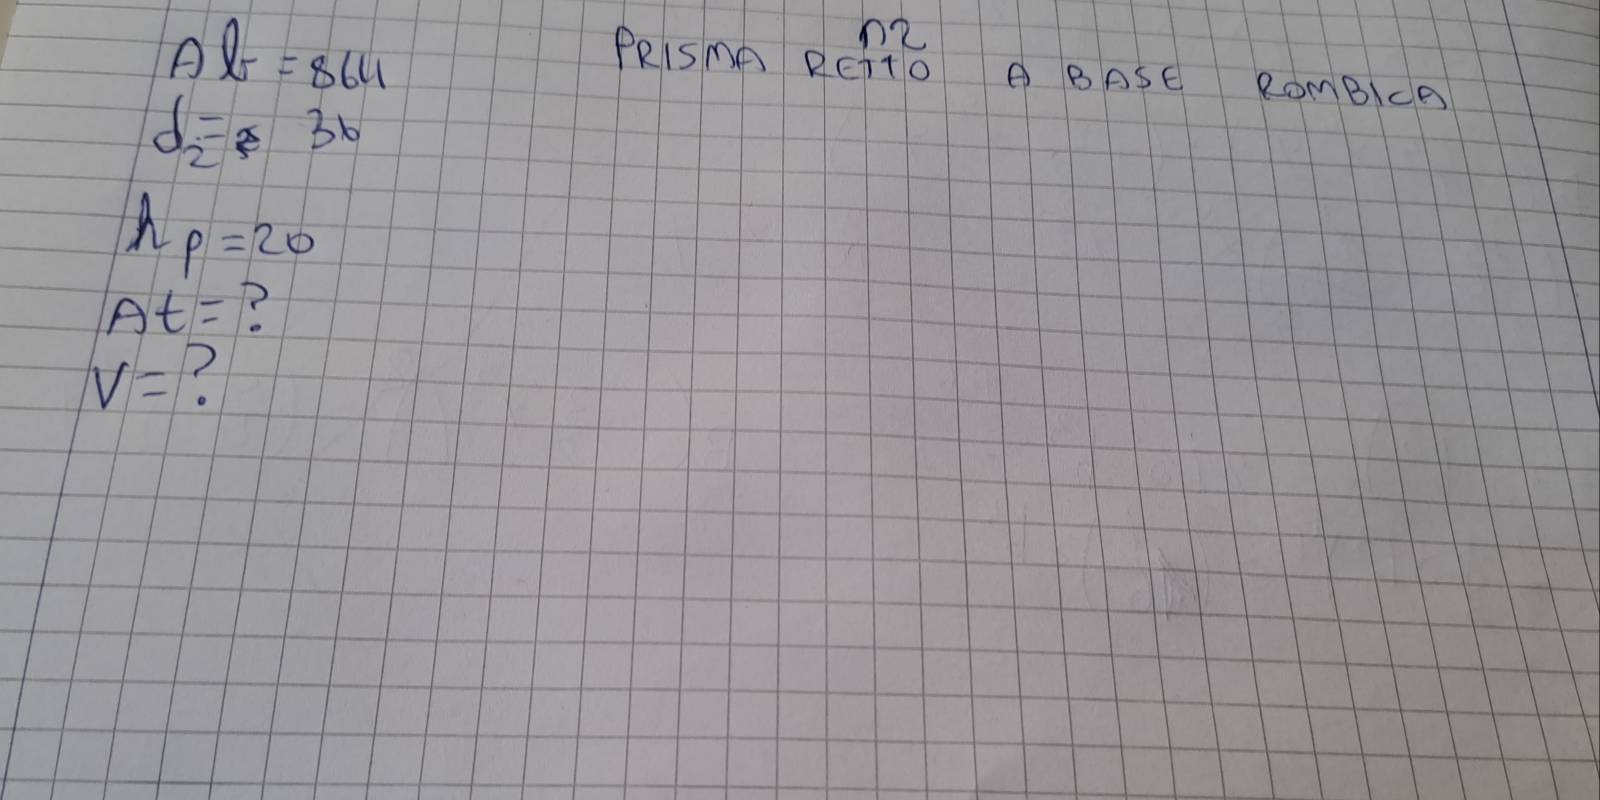 n2
PRISMA RETTO A BASE ROMBICA
Ab = 864
d2 = 36
hp = 20
At = ?
V = ?